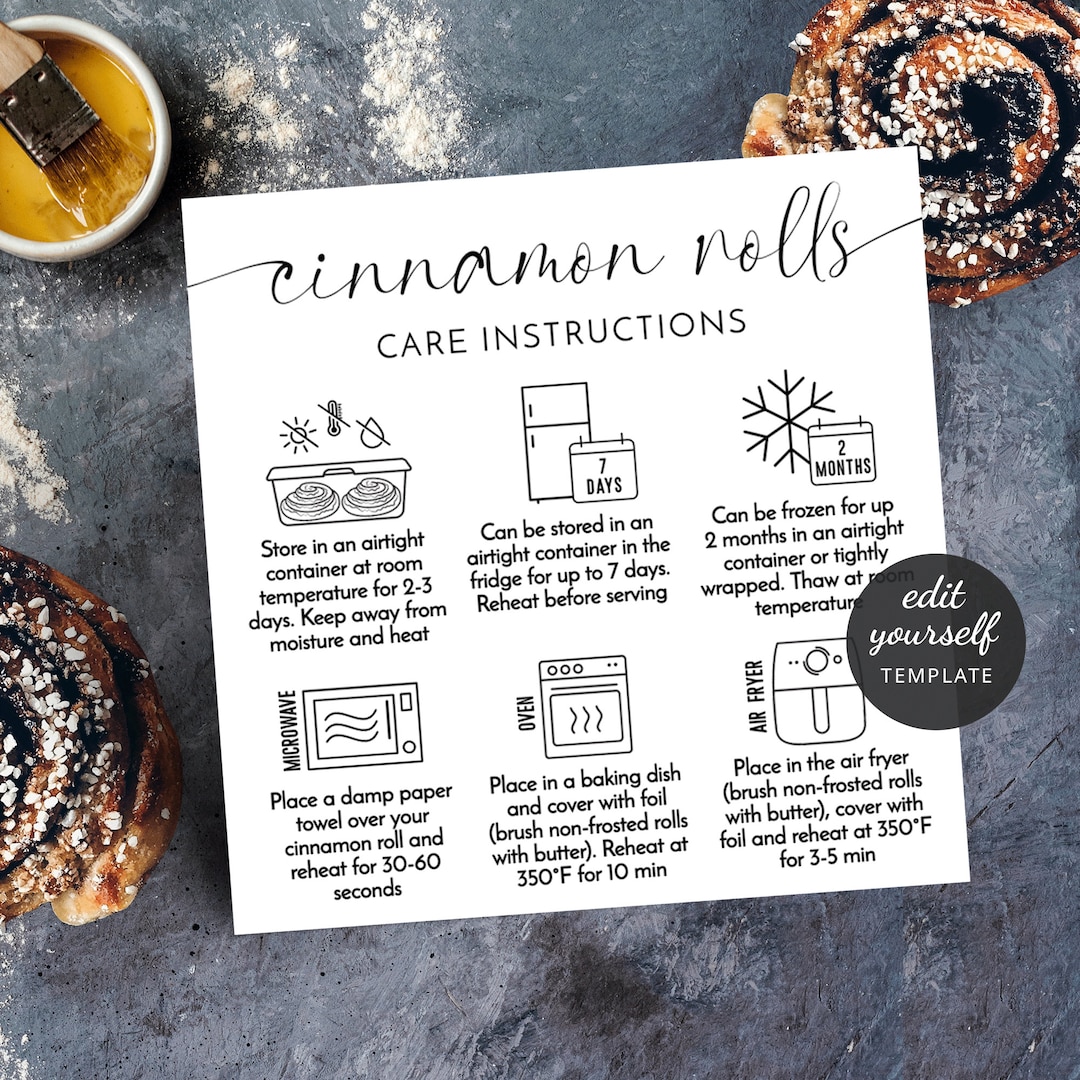 cinnamon rolls
CARE INSTRUCTIONS
Store in an airtight
container at room
temperature for 2-3
days. Keep away from
moisture and heat
7
DAYS
Can be stored in an
airtight container in the
fridge for up to 7 days.
Reheat before serving
2
MONTHS
Can be frozen for up
2 months in an airtight
container or tightly
wrapped. Thaw at room
temperature
edit
yourself
TEMPLATE
MICROWAVE
Place a damp paper
towel over your
cinnamon roll and
reheat for 30-60
seconds
OVEN
Place in a baking dish
and cover with foil
(brush non-frosted rolls
with butter). Reheat at
350°F for 10 min
AIR FRYER
Place in the air fryer
(brush non-frosted rolls
with butter), cover with
foil and reheat at 350°F
for 3-5 min